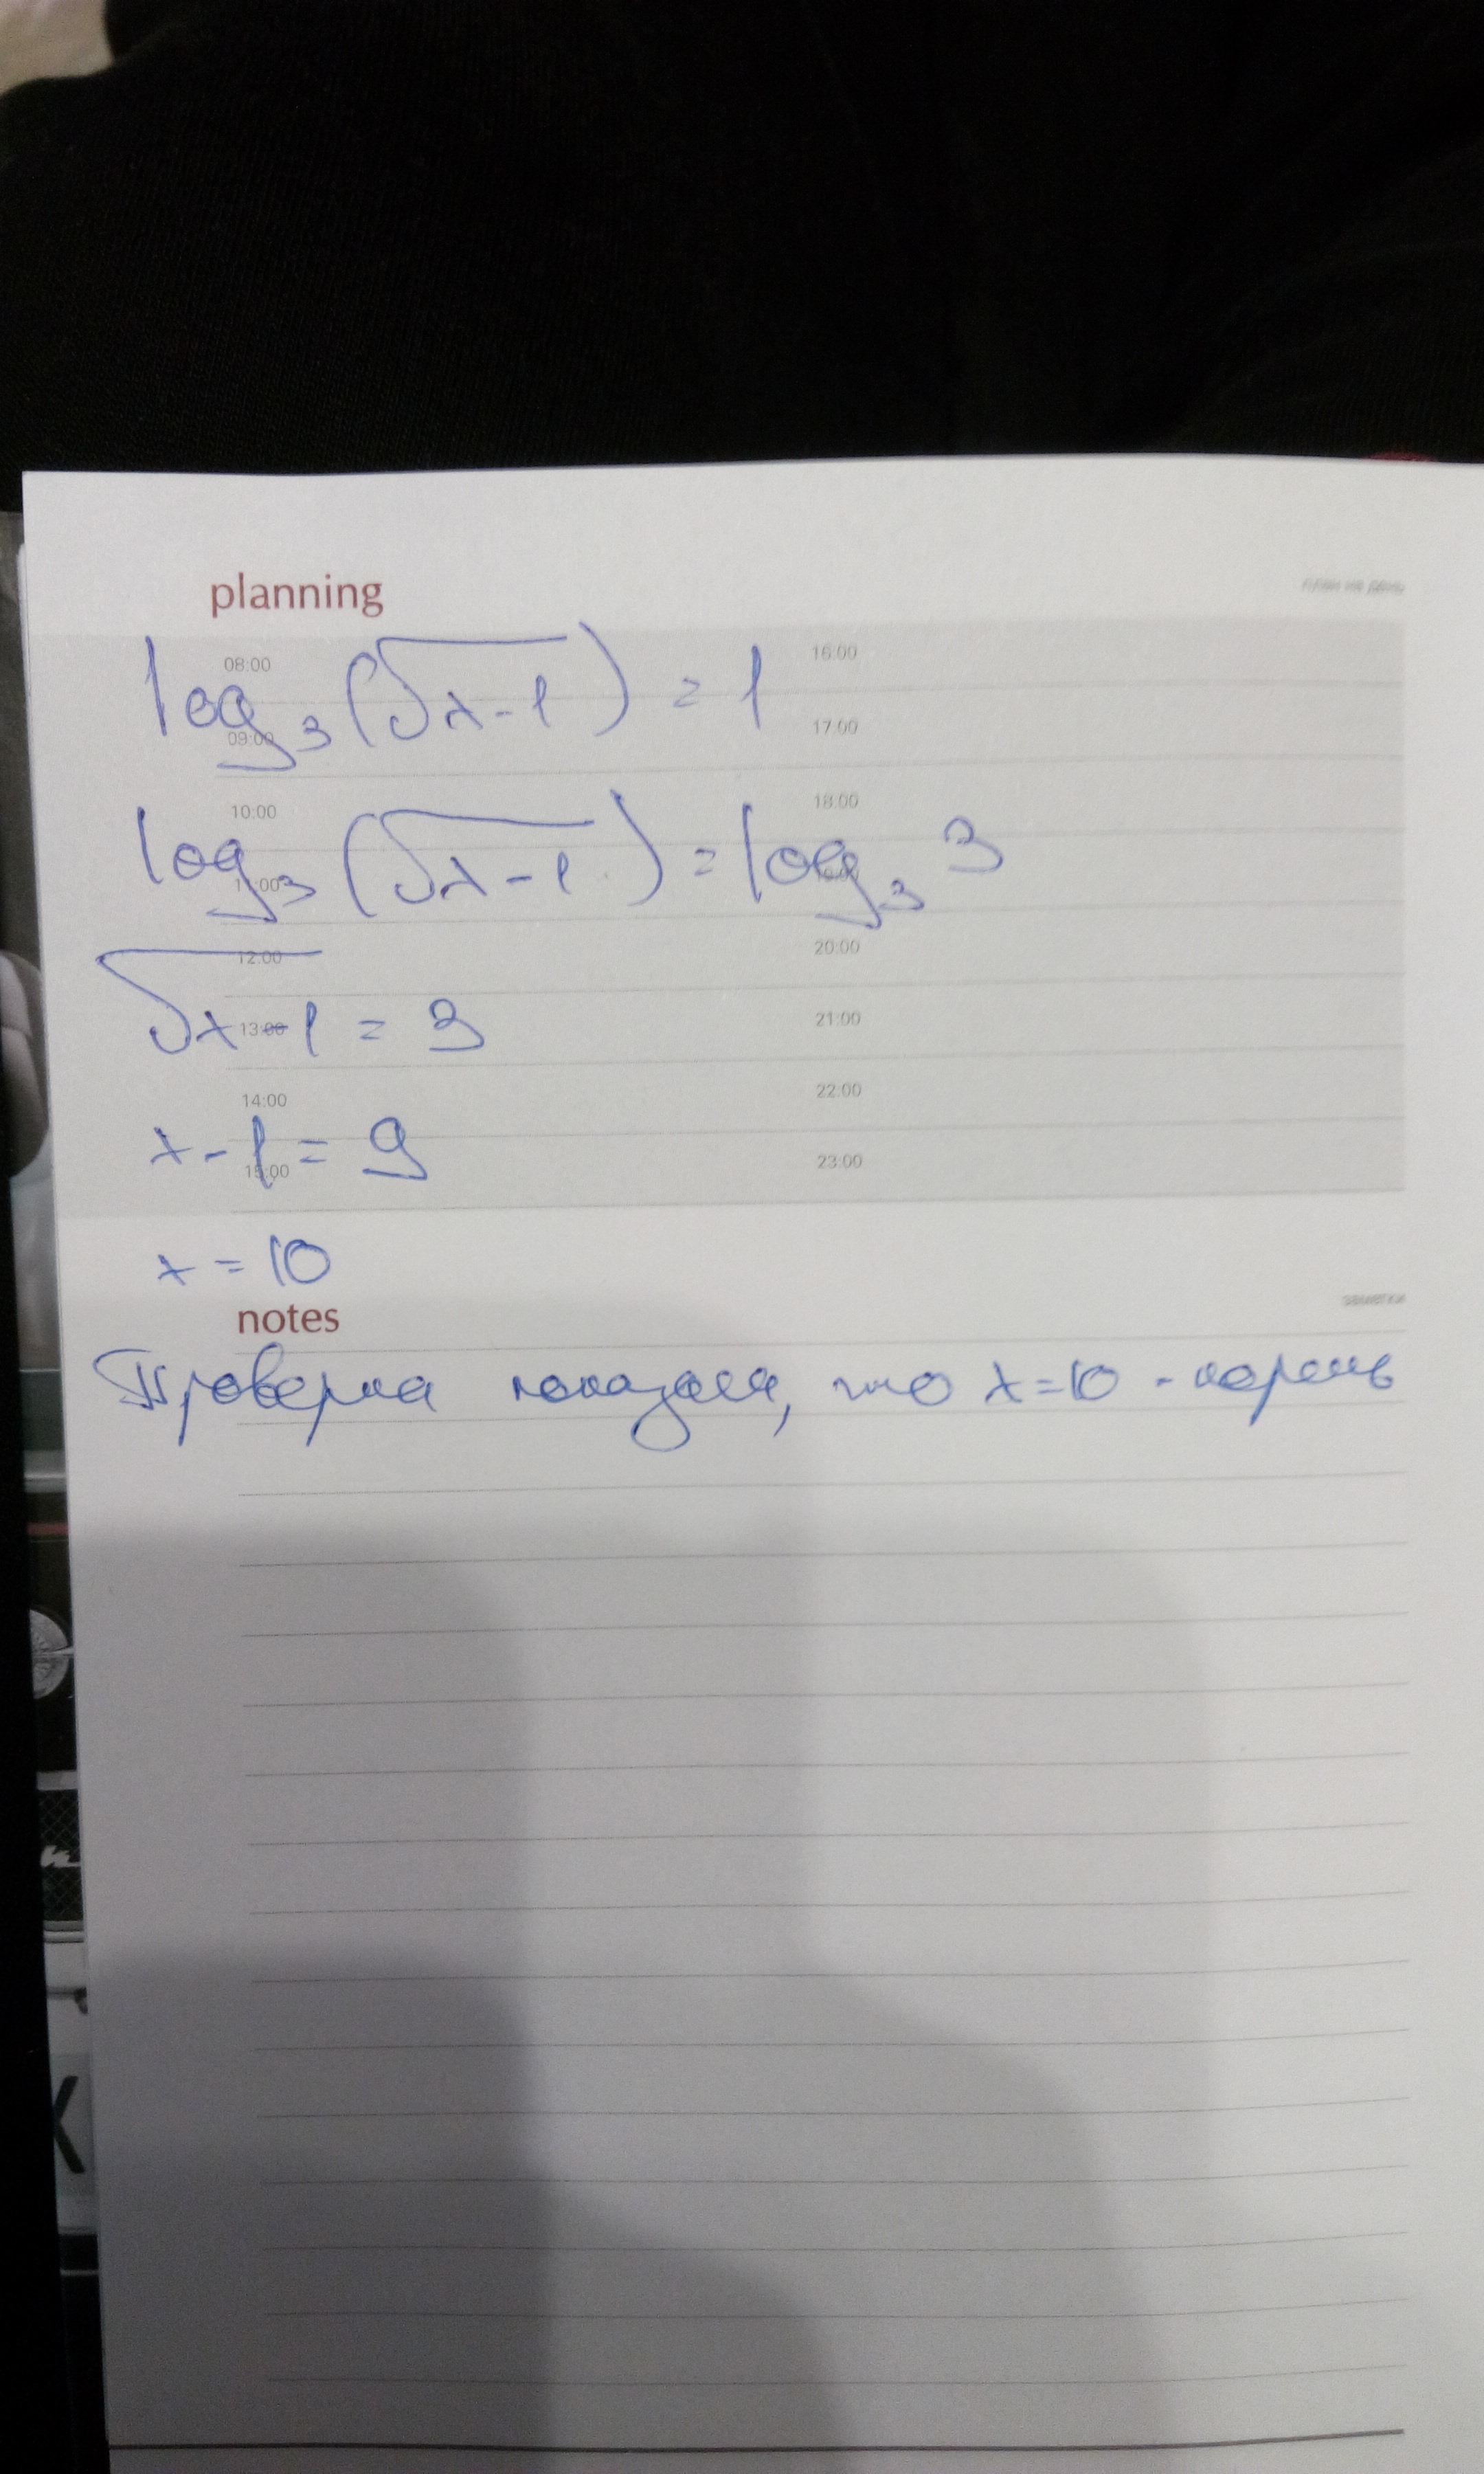 planning
план на день
log₃(√x-1) = 1
08:00
09:00
16:00
17:00
log₃(√x-1) = log₃ 3
10:00
11:00
18:00
19:00
√x-1 = 3
12:00
13:00
20:00
21:00
x-1 = 9
14:00
15:00
22:00
23:00
x = 10
notes
заметки
Проверка показала, что x=10 - корень